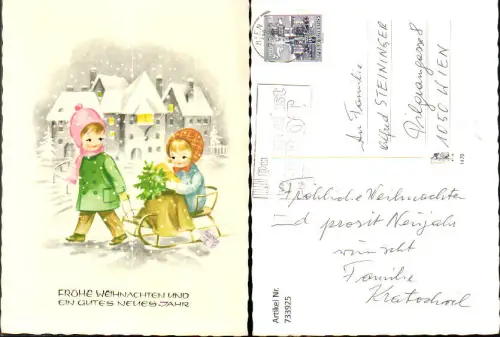 FROHE WEIHNACHTEN UND
EIN GUTES NEUES JAHR
WIEN
An Familie
Alfred STEININGER
Pilgramgasse 8
1050 WIEN
1470
Fröhliche Weihnachten
und prosit Neujahr
wünscht
Familie
Artikel Nr.
733925